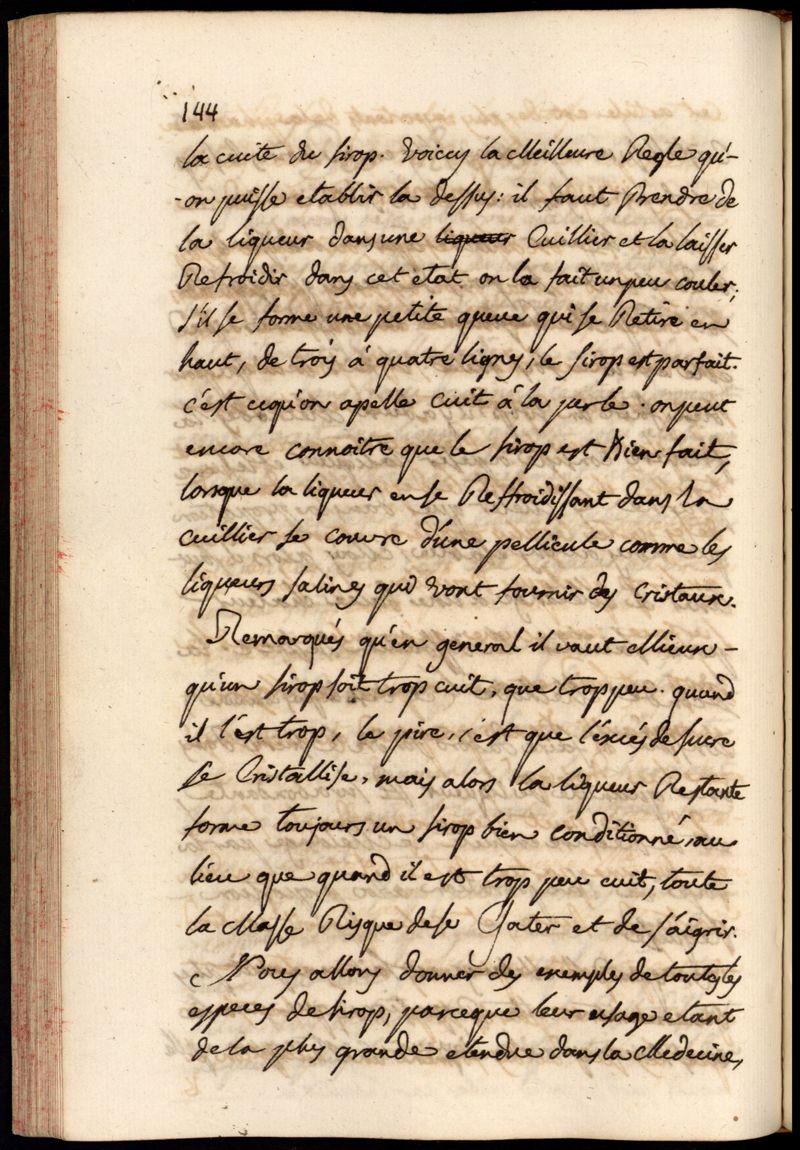 144
la cuite du sirop. voicy la Meilleure Regle qu'-
-on puisse etablir la dessus: il faut Prendre de
la liqueur dans une liqueur Cuillier et la laisser
Refroidir dans cet etat on la fait un peu couler;
s'il se forme une petite queue qui se Retire en
haut, de trois á quatre lignes, le sirop est parfait.
c'est ce qu'on apelle cuit á la perle. on peut
encore connoitre que le sirop est Bien fait,
lorsque la liqueur en se Reffroidissant dans la
cuillier se couvre d'une pellicule comme les
liqueurs salines qui vont fournir des Cristaux.
Remarqués qu'en general il vaut Mieux -
qu'un sirop soit trop cuit, que trop peu. quand
il l'est trop, le pire, c'est que l'éxcés de sucre
se Cristallise, mais alors la liqueur Restante
forme toujours un sirop bien conditionné, au
lieu que quand il est trop peu cuit, toute
la Masse Risque de se Gater et de s'aigrir.
Nous allons donner des exemples de toutes les
especes de sirop, parceque leur usage etant
de la plus grande etendue dans la Medecine,